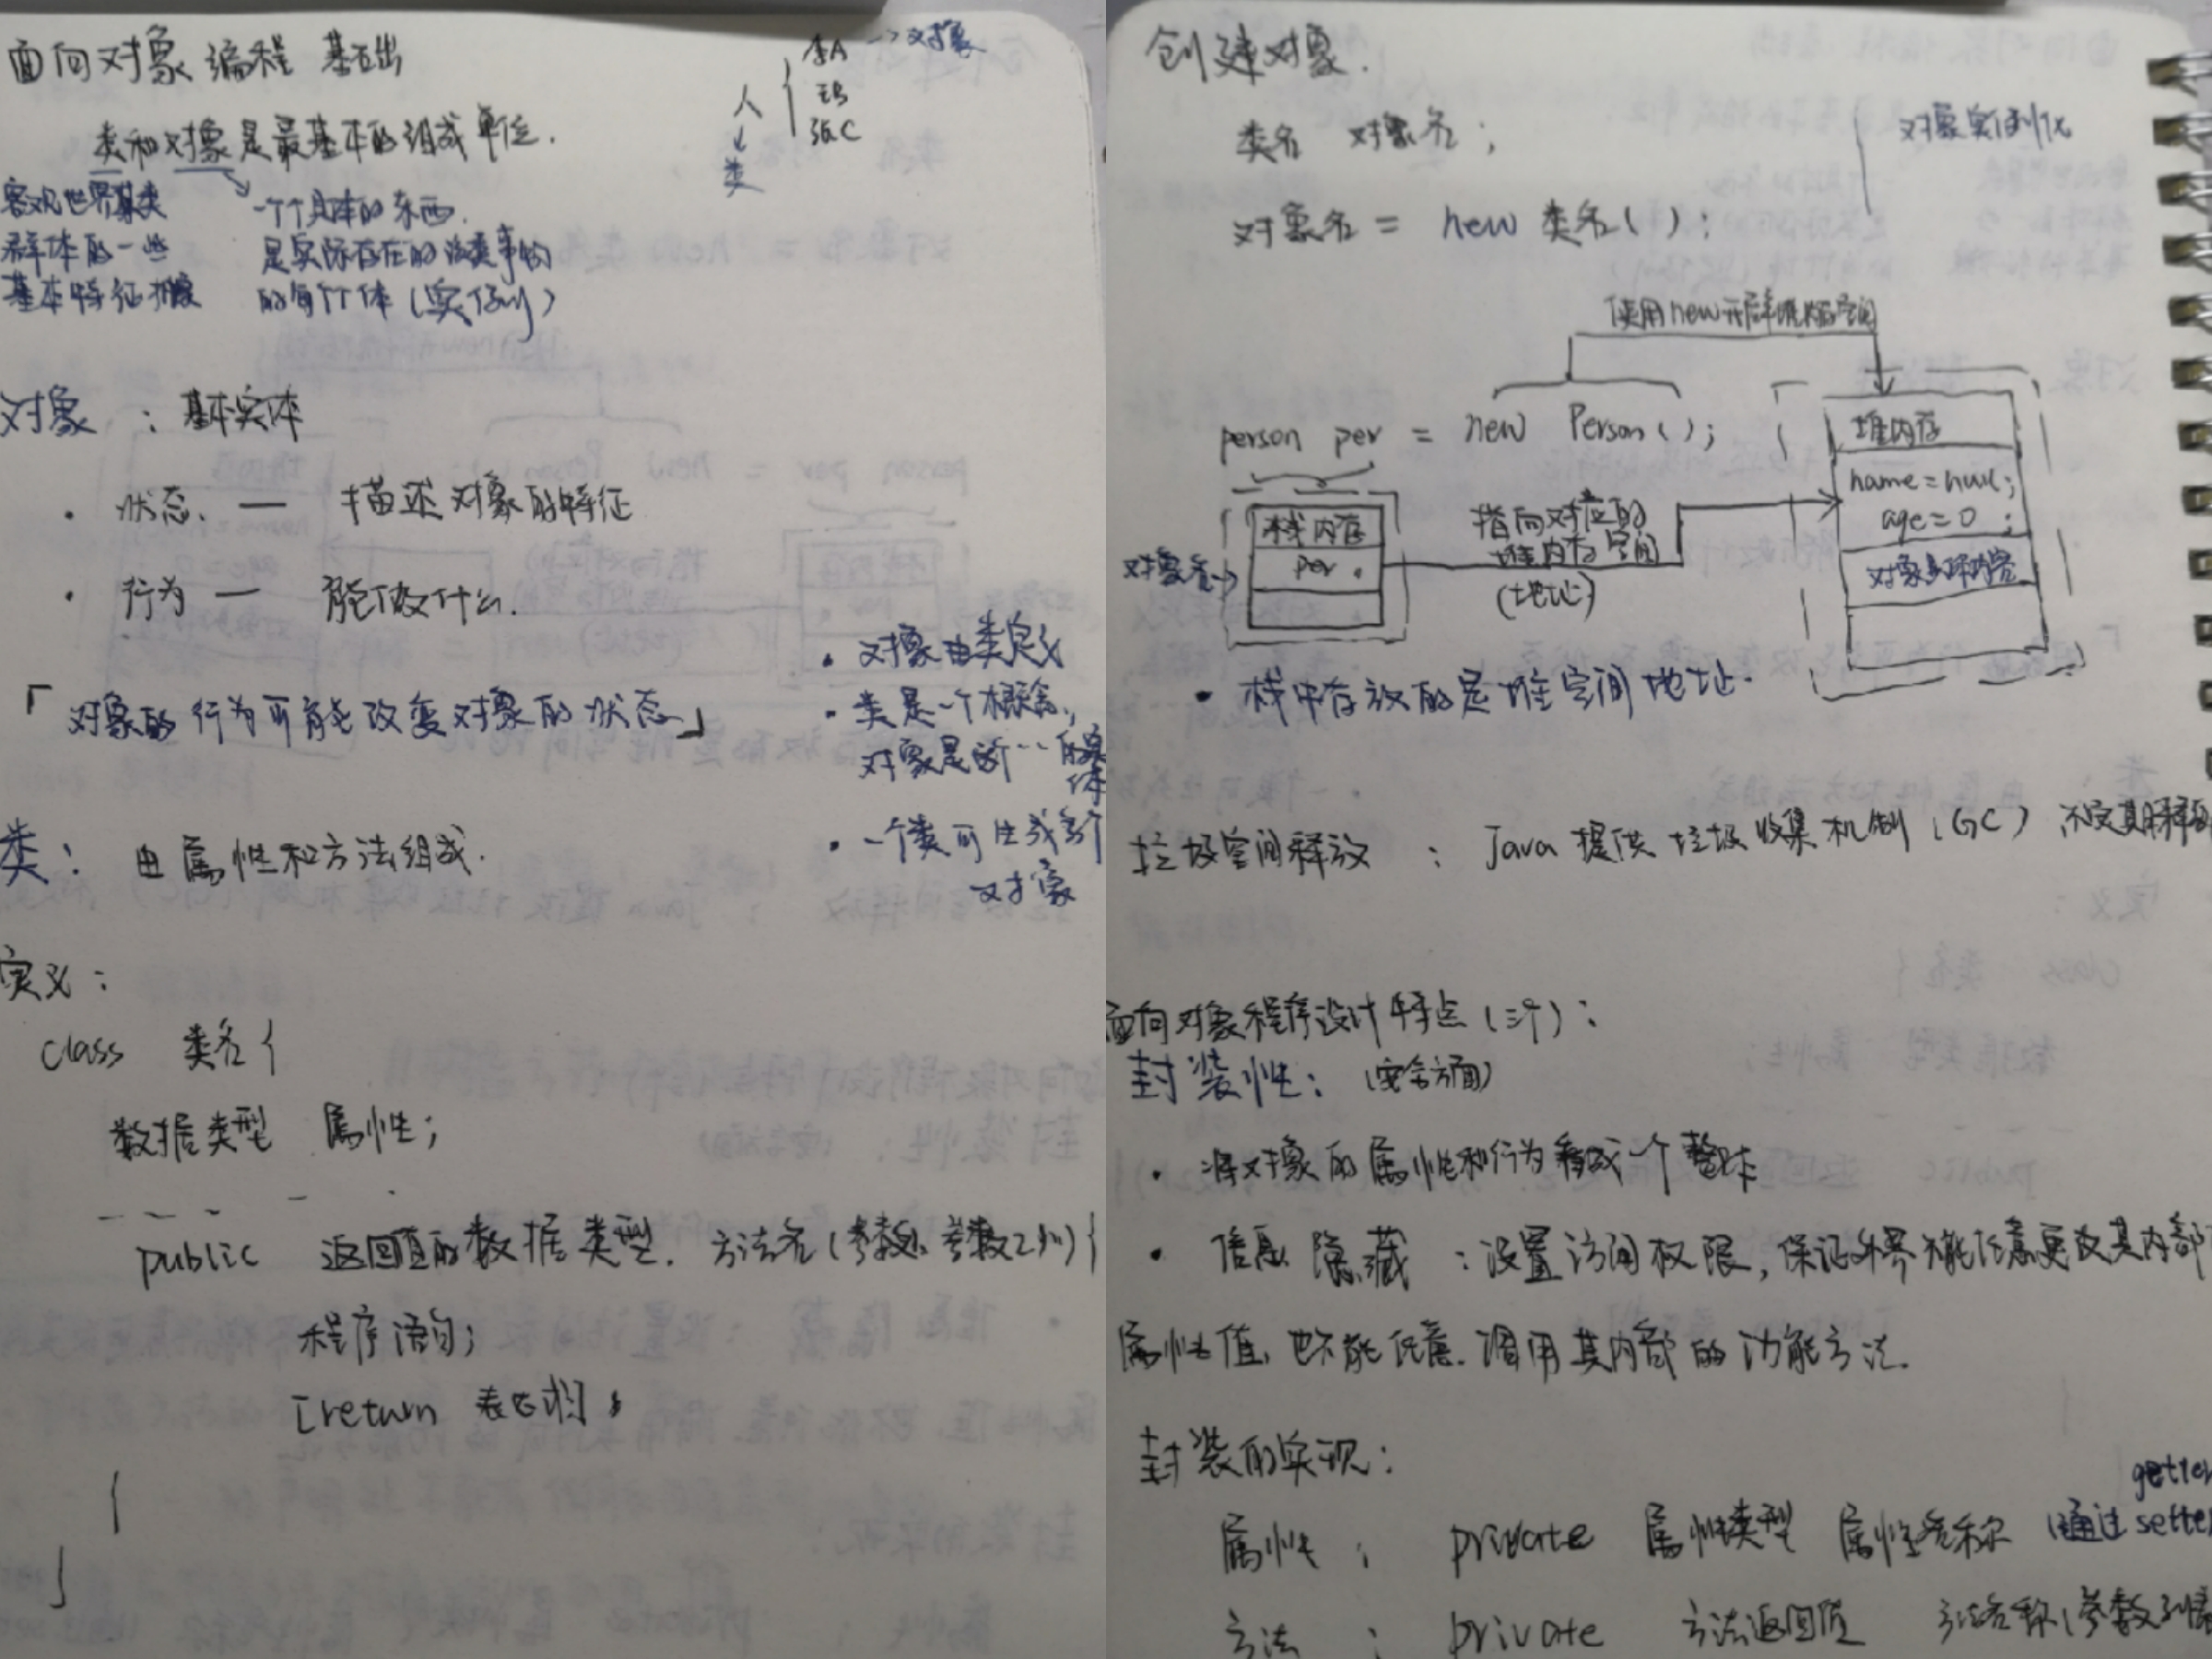 面向对象编程 基础
类和对象是最基本的组成单位.
客观世界某类
群体的一些
基本特征抽象
一个个具体的东西.
是实际存在的该类事物
的每个个体(实例)
人
类
李A → 对象
王B
张C
对象 : 基本实体
· 状态. — 描述对象的特征
· 行为 — 能做什么.
「对象的行为可能改变对象的状态」
· 对象由类定义
· 类是一个概念,
对象是这一
· 一个类可生成多个
对象
类: 由属性和方法组成.
定义:
class 类名{
数据类型 属性;
public 返回值的数据类型. 方法名(参数1, 参数2
程序语句;
[return 表达式];
}
}
创建对象.
类名 对象名;
对象名 = new 类名();
对象实例化
使用new开辟堆内存空间
person per = new Person();
栈内存
per.
对象名→
指向对应的
堆内存空间
(地址)
堆内存
name=null;
age=0;
对象
· 栈中存放的是堆空间地址.
垃圾空间释放 : Java 提供垃圾收集机制(GC) 不定期释放
面向对象程序设计特点(三个):
封装性: (安全方面)
· 将对象的属性和行为看成一个整体
· 信息隐藏 : 设置访问权限, 保证外界不能任意更改其内部
属性值, 也不能任意.调用其内部的功能方法.
封装的实现:
属性 : private 属性类型 属性名称 (通过 sette
gette
方法 : private 方法返回值 方法名称(参数列